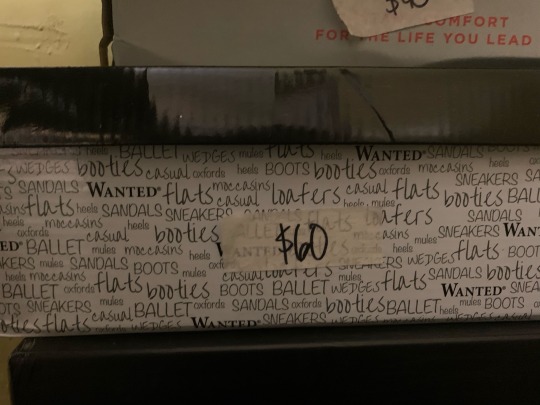 $90
COMFORT
FOR THE LIFE YOU LEAD
BALLET WEDGES mules flats heels WANTED SANDALS
WEDGES booties casual oxfords heels BOOTS booties casual oxfords heels
SANDALS WANTED flats moccasins casual loafers casual flats moccasins SNEAKERS
flats heels SANDALS casual booties BALL
heels moccasins SNEAKERS SANDALS flats loafers SANDALS
oxfords casual booties heels $60 casual mules SNEAKERS WANT
BALLET mules moccasins oxfords moccasins WEDGES flats BOOT
KERS mules SANDALS BOOTS mules casual loafers SNEAKERS SANDALS casual booties
BALLET oxfords flats booties BOOTS BALLET WEDGES mules flats heels WANTED SNE
SNEAKERS mules BALLET oxfords SANDALS oxfords booties BALLET heels mules BOOTS
booties flats casual oxfords WEDGES WANTED SNEAKERS